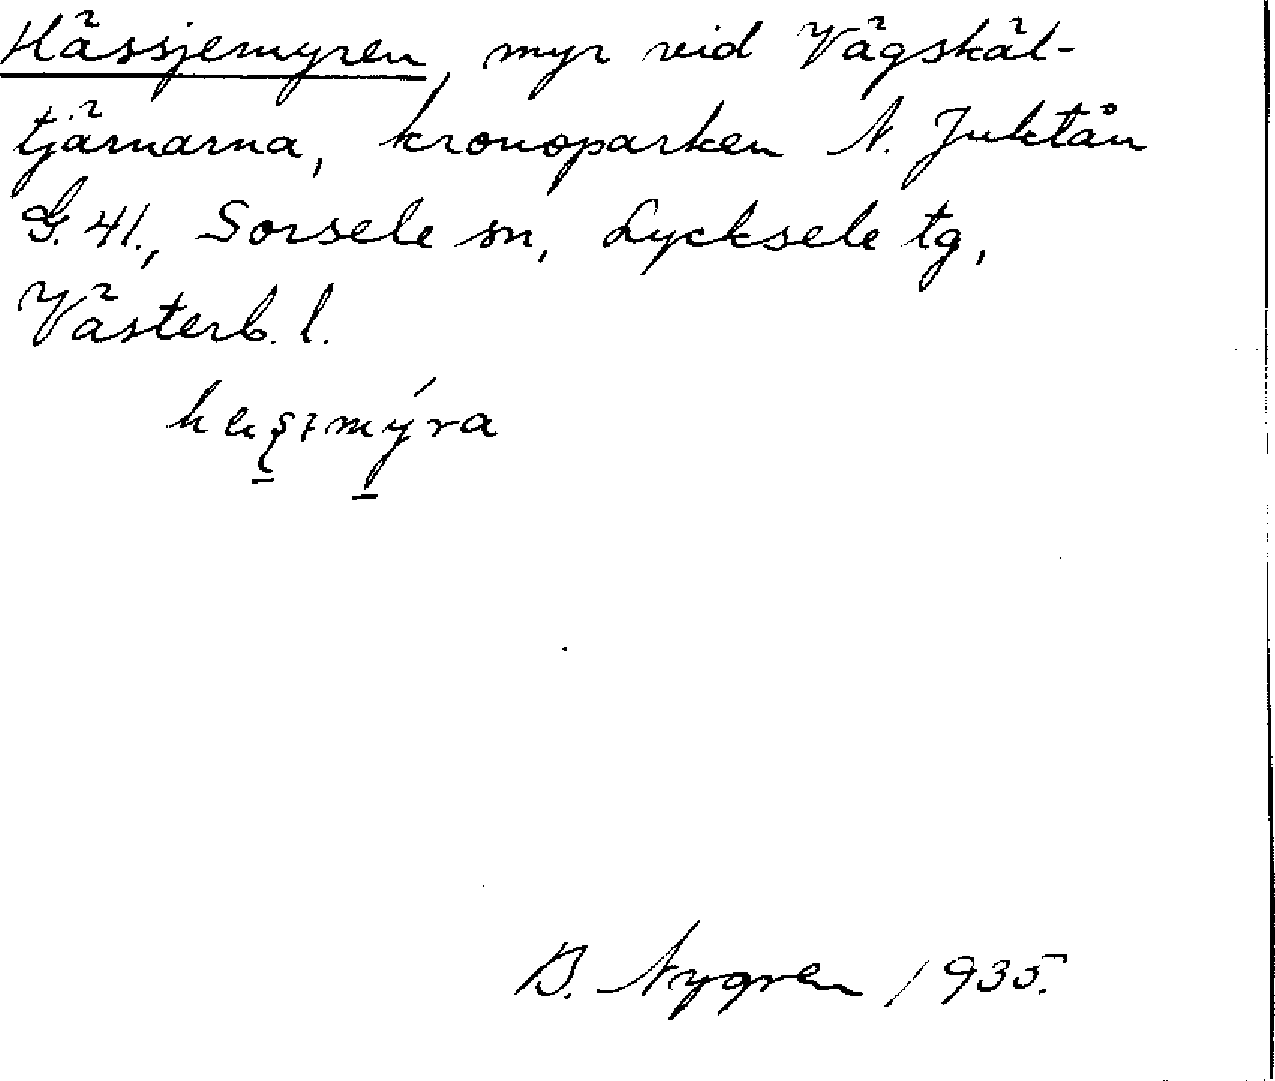 Hässjemyren, myr vid Vägskäl-
tjärnarna, kronoparken N. Juktån
G. 41., Sorsele sn, Lycksele tg,
Västerb. l.
B. Nygren 1935.